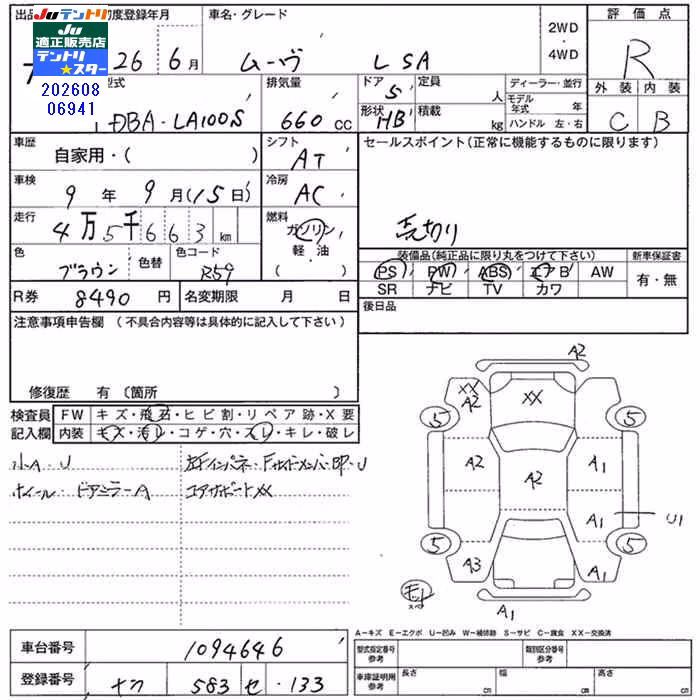 Juテントリ
Ju
適正販売店
テントリ
★スター
202608
06941
出品
初度登録年月
26 6月
車名・グレード
ムーヴ L SA
2WD
・
4WD
評価点
R
外装 内装
C B
型式
DBA-LA100S
排気量
660 cc
ドア 5
形状 HB
定員 人
積載 kg
ディーラー・並行
モデル年式 年
ハンドル 左・右
車歴
自家用・( )
シフト
AT
セールスポイント(正常に機能するものに限ります)
売切り
車検
9年 9月(15日)
冷房
AC
走行
4万5千663 km
燃料
ガソリン
軽・油
( )
色
ブラウン
色替
色コード
R59
装備品(純正品に限り丸をつけて下さい)
新車保証書
PS PW ABS エアB AW
SR ナビ TV カワ
有・無
R券 8490 円
名変期限 月 日
後日品
注意事項申告欄 (不具合内容等は具体的に記入して下さい)
修復歴 有(箇所 )
検査員
記入欄
FW キズ・飛石・ヒビ割・リペア跡・X要
内装 キズ・汚レ・コゲ・穴・スレ・キレ・破レ
小A・U
ホイール・ドアミラーA
左Fインパネ・Fサイドメンバー
コアサポートXX
A2
XX
A2
XX
5
5
A2
A2
A1
A1
U1
5
5
A3
A1
A1
A-キズ E-エクボ U-凹み W-補修跡 S-サビ C-腐食 XX-交換済
車台番号 1094646
登録番号 583 せ ・133
型式指定番号
参考
類別区分番号
参考
車庫証明用
参考
長さ cm
幅 cm
高さ cm